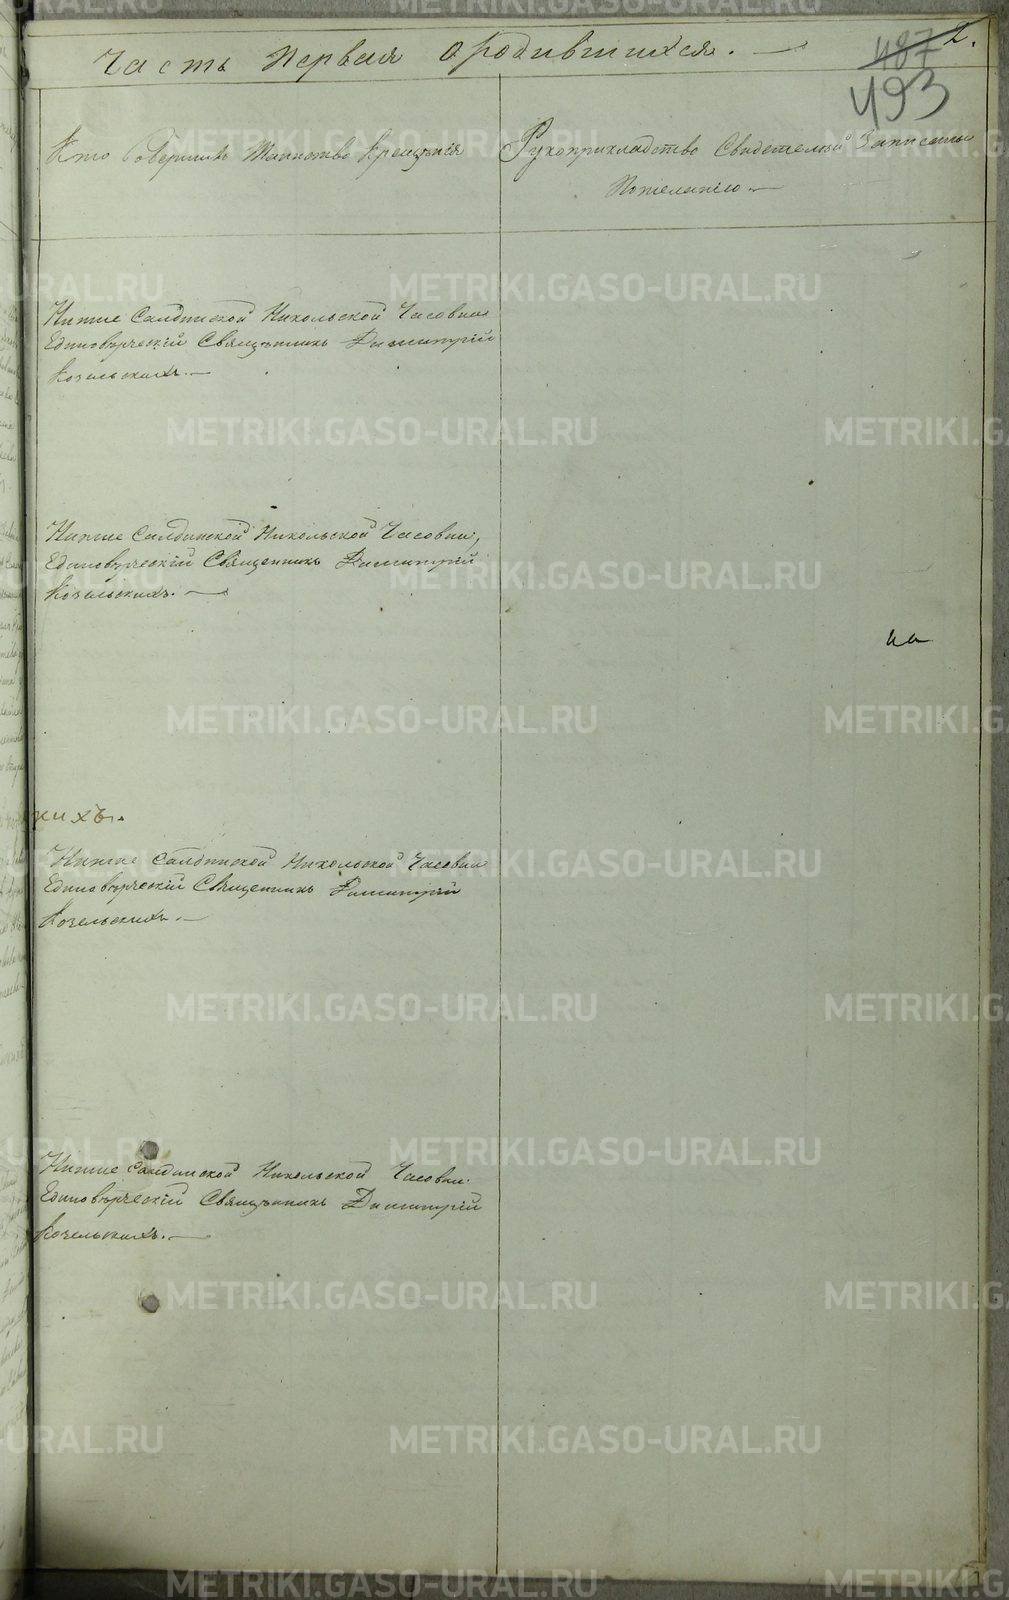 Часть Первая о родившихся.
2.
487
493
Кто Совершилъ Таинство Крещенія
Рукоприкладство Свидетелей Записаны
Пожеланію
Нижне Салдинской Никольской Часовни
Единовѣрческій Священникъ Димитрій
Козельскихъ.
Нижне Салдинской Никольской Часовни,
Единовѣрческій Священникъ Димитрій
Козельскихъ.
на
кихъ.
Нижне Салдинской Никольской Часовни
Единовѣрческій Священникъ Димитрій
Козельскихъ.
Нижне Салдинской Никольской Часовни
Единовѣрческій Священникъ Димитрій
Козельскихъ.
METRIKI.GASO-URAL.RU